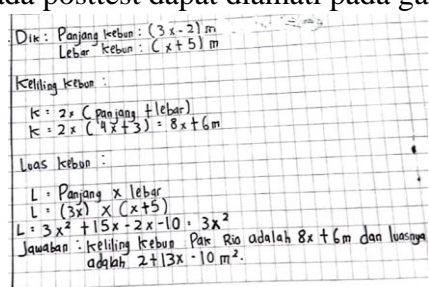 ada posttest dapat diamati pada ga
Dik : Panjang kebun : (3x-2) m
Lebar kebun : (x+5) m
Keliling kebun :
K = 2x (panjang + lebar)
K = 2x (4x+3) = 8x+6m
Luas kebun :
L = Panjang x lebar
L = (3x) x (x+5)
L = 3x² + 15x - 2x - 10 = 3x²
Jawaban : keliling kebun Pak Rio adalah 8x + 6m dan luasnya
adalah 2+13x - 10 m².